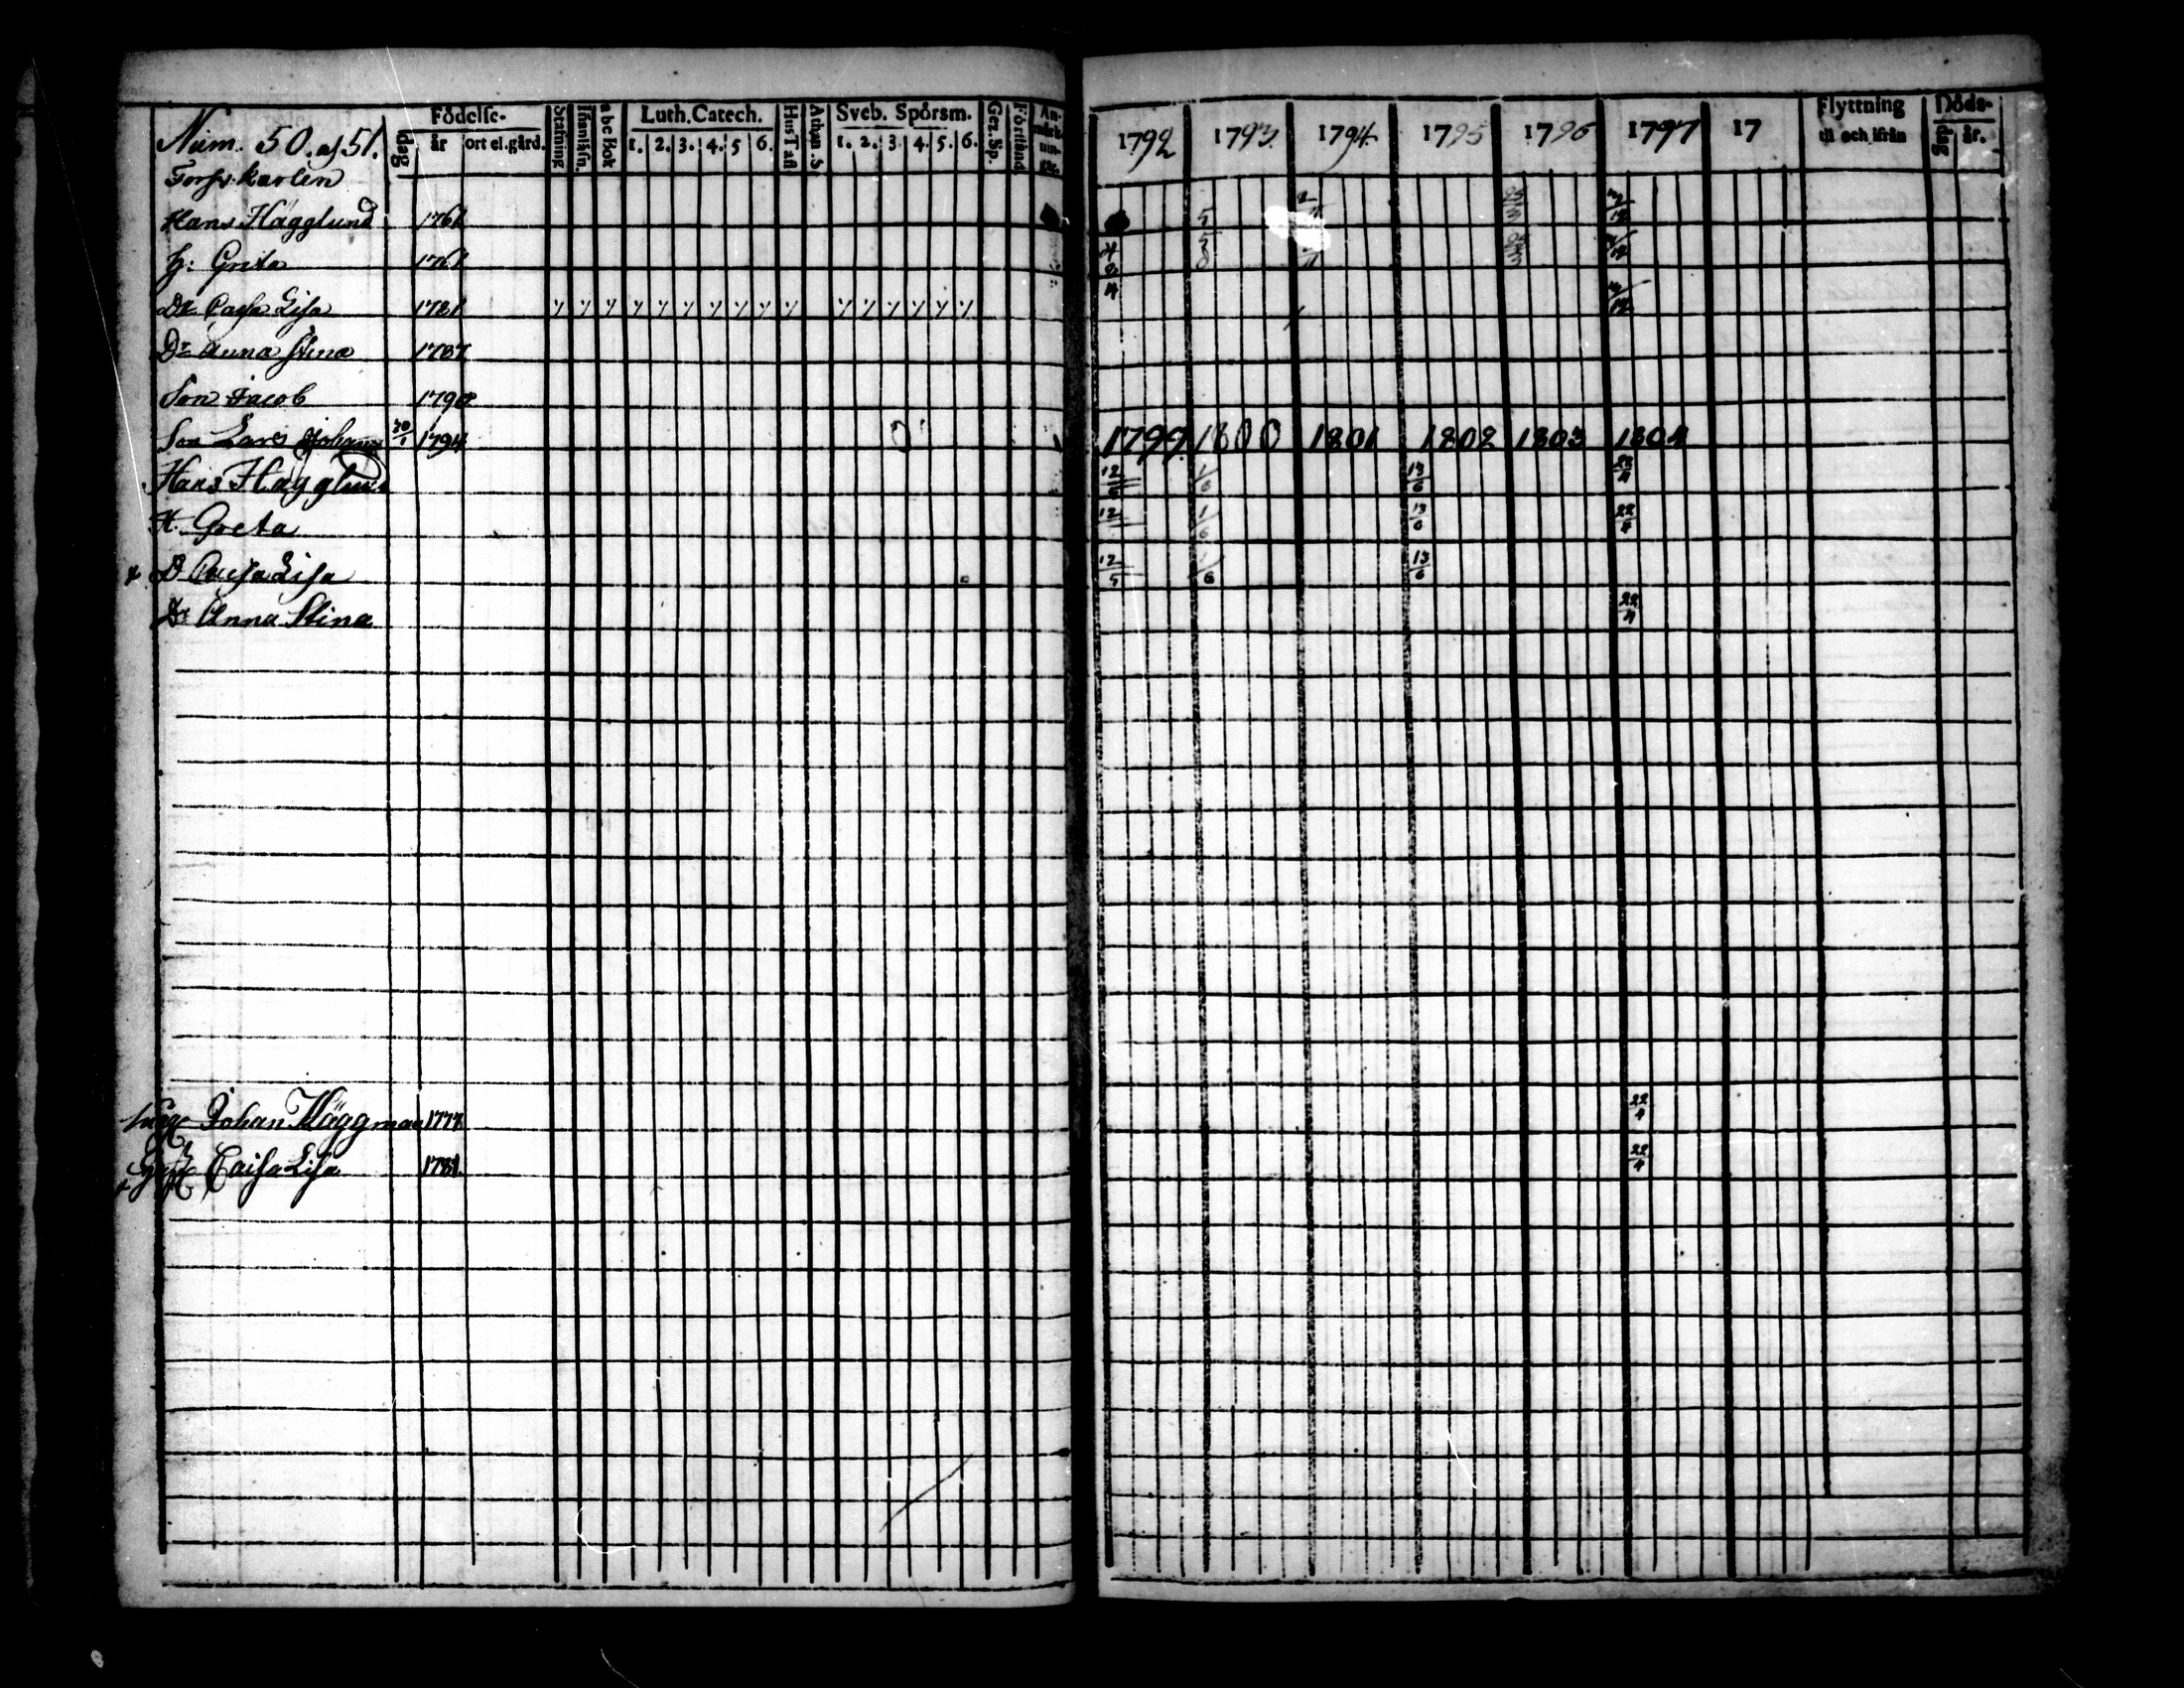 Num. 50. af 51.
Födelse-
dag
år
ort el. gård.
Stafning
Inanläsn.
abc Bok
Luth. Catech.
1. 2. 3. 4. 5 6.
Hus Tafl
Athan. S
Sveb. Spörsm.
1. 2. 3 4. 5. 6.
Gez. Sp.
Förstånd
1792 1793 1794 1795 1796 1797 17
Flyttning
til och ifrån
Döds-
dag
år.
Hans Hägglund 1761 5/3
H: Greta 1761
Dr Caisa Lisa 1781
Dr Anna Stina 1787
Son Jacob 1790
Son Lars Johan 1794 1799 1800 1801 1802 1803 1804
Hans Hägglund 1/6 13/6 22/4
H. Greta 12 1/6 13/6 22/4
D Caisa Lisa 12/5 1/6 13/6
Dr Anna Stina 22/4
Johan Häggman 1777 22/4
Caisa Lisa 1781. 22/4